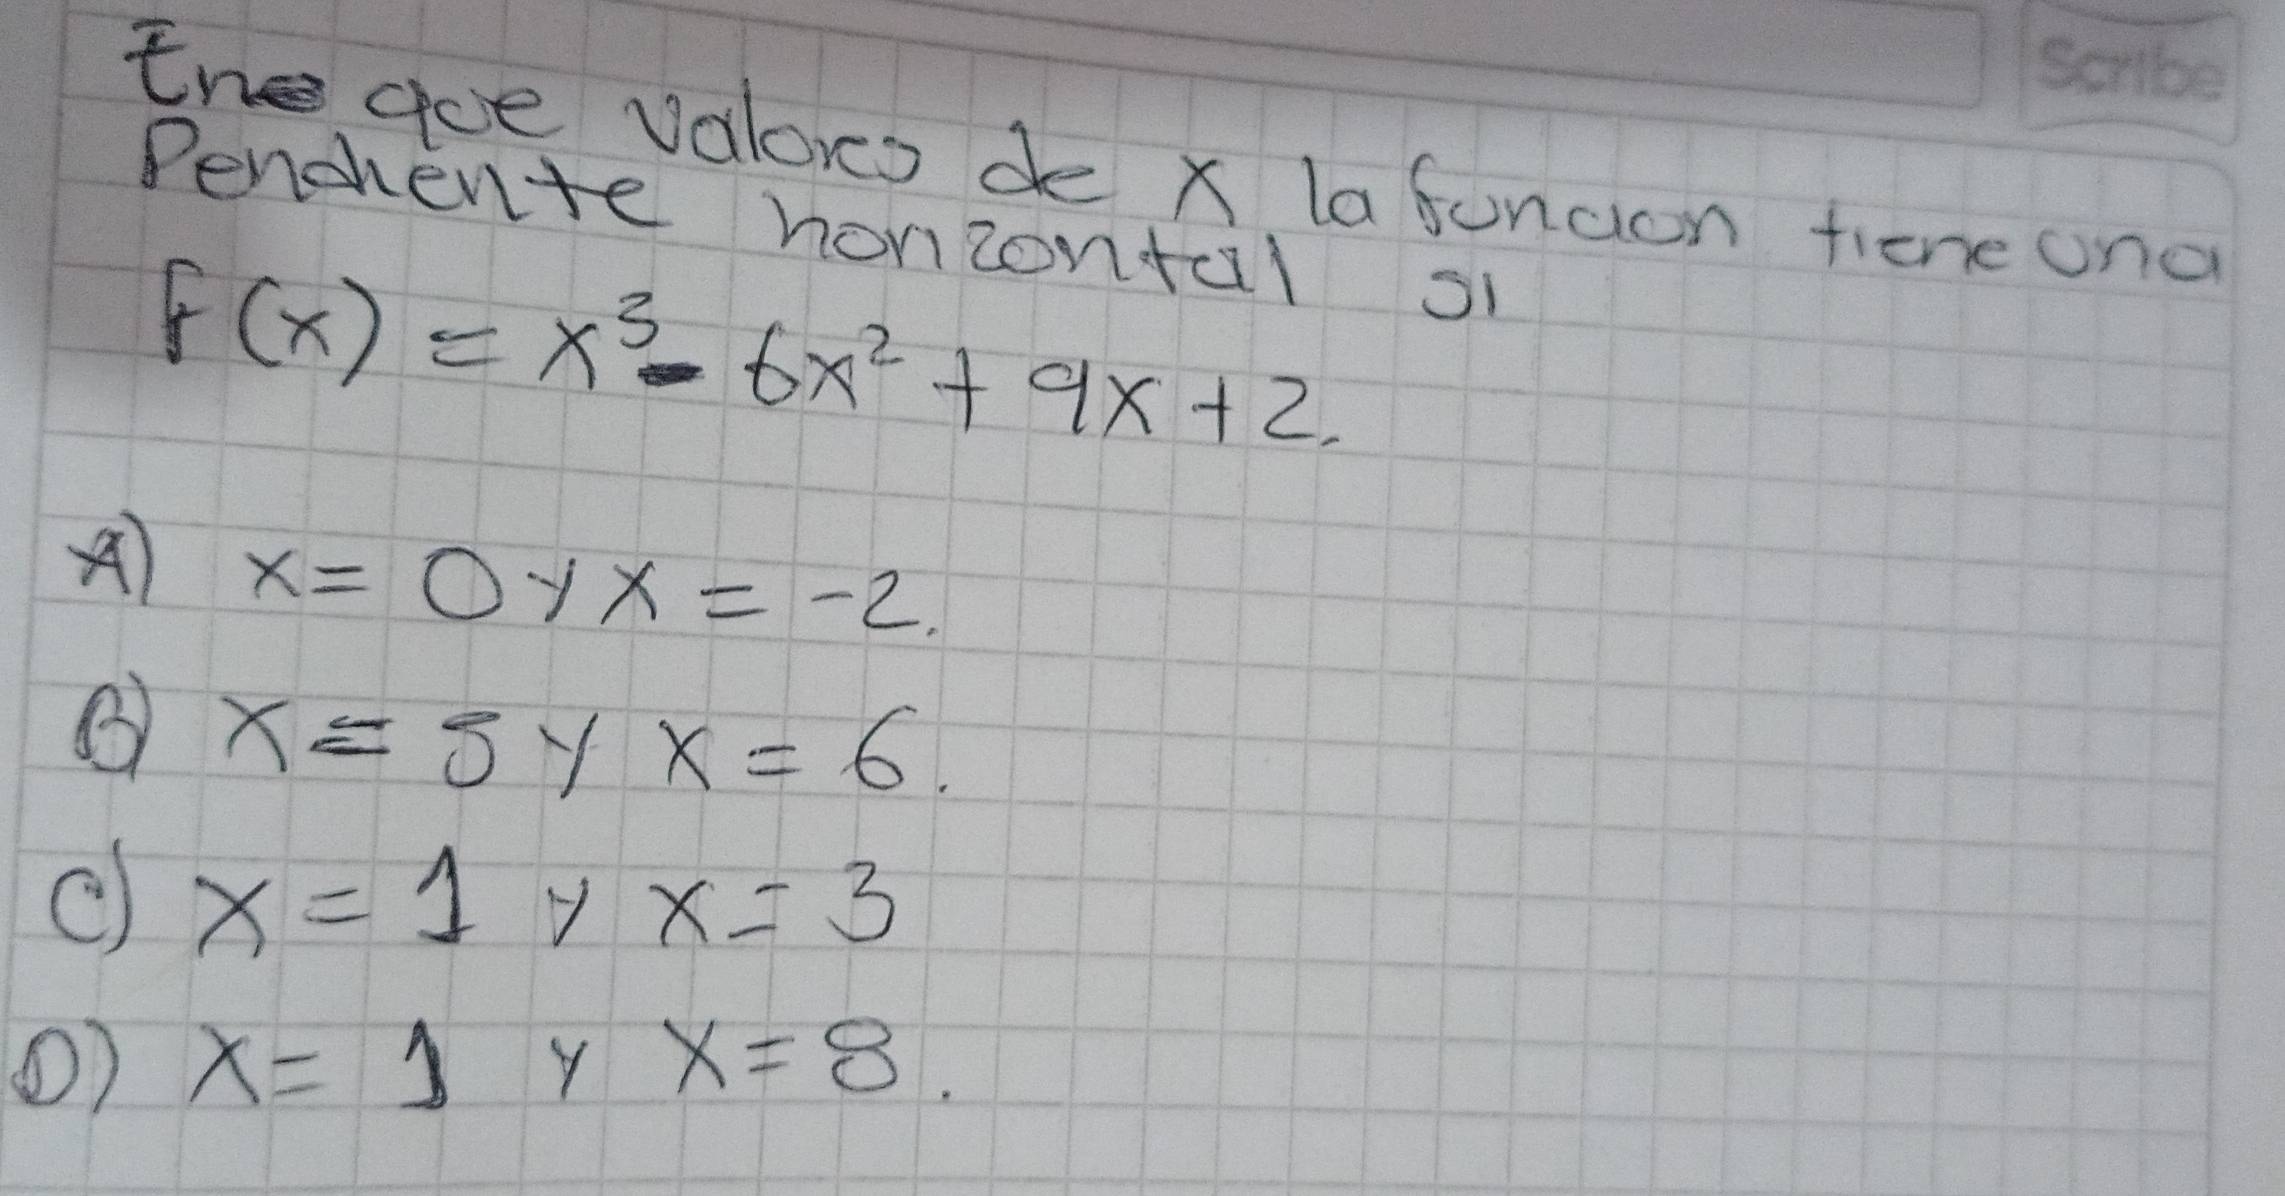 Scribe
En que valores de x la funcion tiene una
Pendiente horizontal si
F(x) = x³ - 6x² + 9x + 2.
A) x = 0 y x = -2.
B) x = 5 y x = 6.
C) x = 1 y x = 3
D) x = 1 y x = 8.